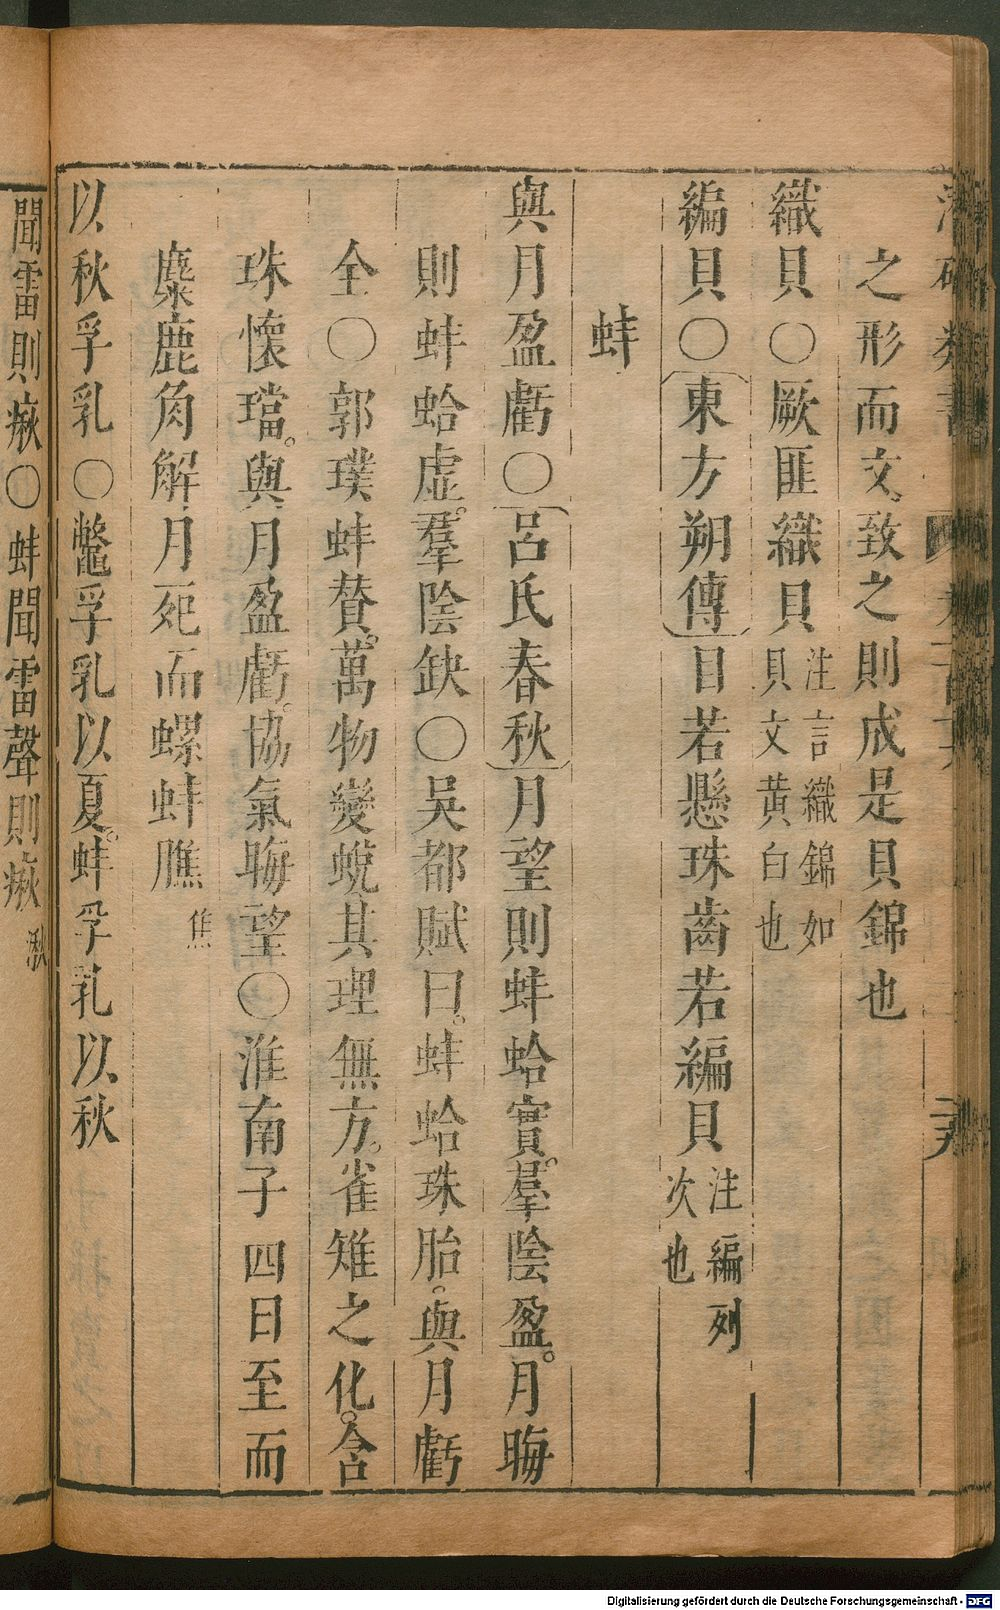 之形而文。致之則成是貝錦也
織貝○厥匪織貝注言織錦如貝文黄白也
編貝○東方朔傳目若懸珠齒若編貝注編列次也
蚌
與月盈虧○呂氏春秋月望則蚌蛤實。羣陰盈。月晦
則蚌蛤虛。羣陰缺○吳都賦曰。蚌蛤珠胎。與月虧
全○郭璞蚌賛。萬物變蛻其理無方。雀雉之化。含
珠懷璫。與月盈虧。協氣晦望○淮南子四日至而
麋鹿角解月死而螺蚌膲焦
以秋孚乳○鼈孚乳以夏。蚌孚乳以秋
聞雷則瘷○蚌聞雷聲則瘷
Digitalisierung gefördert durch die Deutsche Forschungsgemeinschaft - DFG